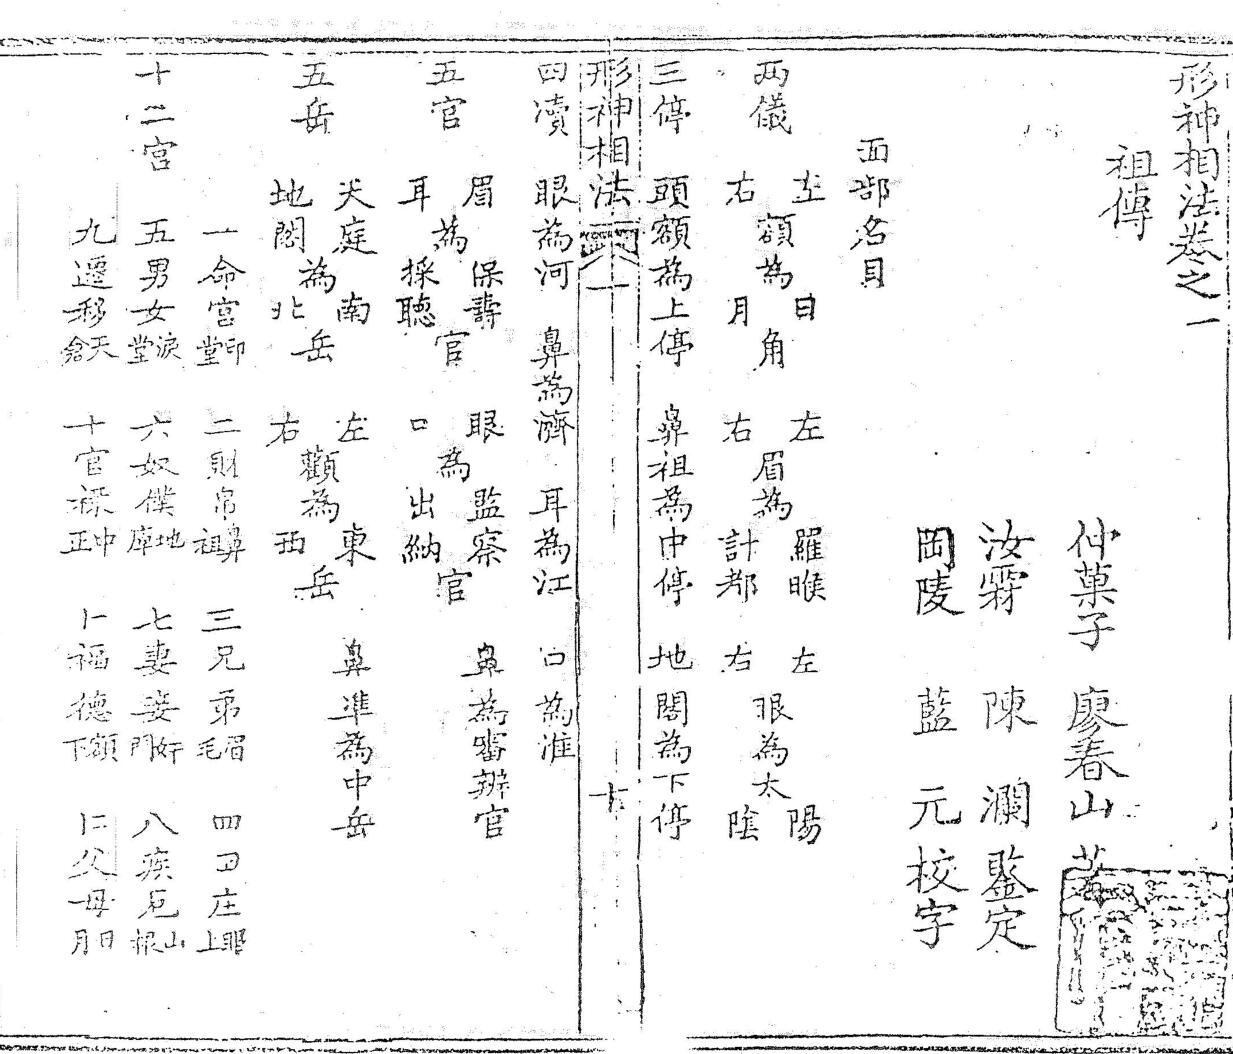 形神相法卷之一
祖傳
仲菓子 廖春山 著
汝霖 陳瀾 鑒定
岡陵 藍元 校字
面部名目
两儀 左右額為日月角 左右眉為羅睺計都 左右眼為太陽陰
三停 頭額為上停 鼻祖為中停 地閣為下停
形神相法 一 十
四瀆 眼為河 鼻為濟 耳為江 口為淮
五官 眉耳為保壽採聽官 眼口為監察出納官 鼻為審辨官
五岳 天庭地閣為南北岳 左右顴為東西岳 鼻準為中岳
十二宮 一命宮印堂 二財帛鼻祖 三兄弟眉毛 四田庄上
五男女淚堂 六奴僕地庫 七妻妾奸門 八疾厄山根
九遷移天倉 十官祿中正 十一福德額下 十二父母日月